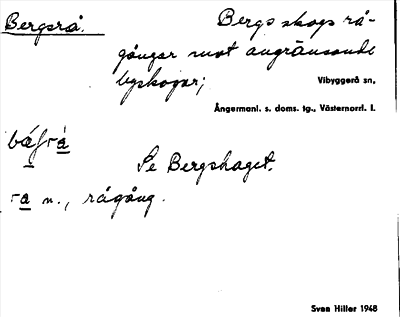 Bergsrå.
Bergs skogs rå-
gångar mot angränsande
byskogar;
Vibyggerå sn,
Ångermanl. s. doms. tg., Västernorrl. l.
Se Bergshaget.
ra n., rågång.
Sven Hiller 1948